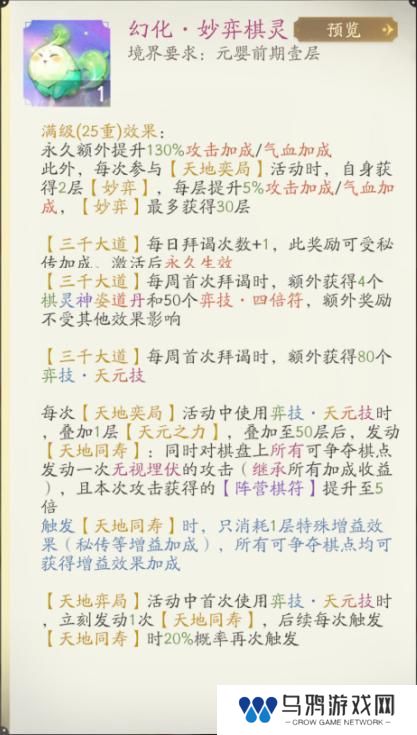 幻化·妙弈棋灵
预览
境界要求：元婴前期壹层
1
满级(25重)效果：
永久额外提升130%攻击加成/气血加成
此外，每次参与【天地奕局】活动时，自身获
得2层【妙弈】，每层提升5%攻击加成/气血加
成，【妙弈】最多获得30层
【三千大道】每日拜谒次数+1，此奖励可受秘
传加成，激活后永久生效
【三千大道】每周首次拜谒时，额外获得4个
棋灵神姿道丹和50个弈技·四倍符，额外奖励
不受其他效果影响
【三千大道】每周首次拜谒时，额外获得80个
弈技·天元技
每次【天地奕局】活动中使用弈技·天元技时
，叠加1层【天元之力】，叠加至50层后，发动
【天地同寿】：同时对棋盘上所有可争夺棋点
发动一次无视埋伏的攻击（继承所有加成收益
），且本次攻击获得的【阵营棋符】提升至5
倍
触发【天地同寿】时，只消耗1层特殊增益效
果（秘传等增益加成），所有可争夺棋点均可
获得增益效果加成
【天地弈局】活动中首次使用弈技·天元技时
，立刻发动1次【天地同寿】，后续每次触发
【天地同寿】时20%概率再次触发
乌鸦游戏网
CROW GAME NETWORK